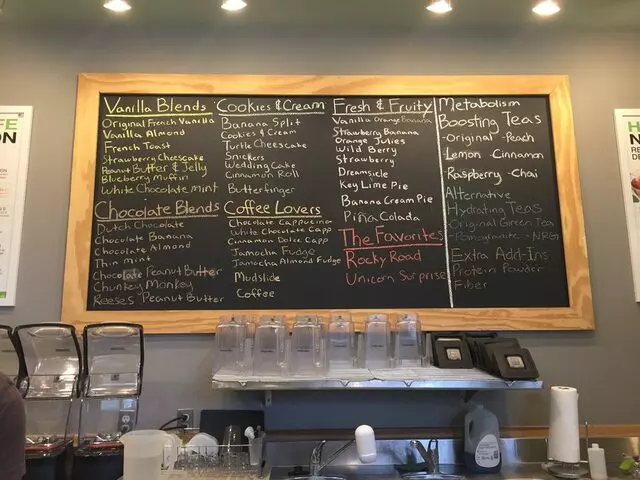 Vanilla Blends
Original French Vanilla
Vanilla Almond
French Toast
Strawberry Cheescake
Peanut Butter & Jelly
Blueberry Muffin
White Chocolate Mint
Chocolate Blends
Dutch Chocolate
Chocolate Banana
Chocolate Almond
Thin mint
Chocolate Peanut Butter
Chunkey Monkey
Reeses Peanut Butter
Cookies & Cream
Banana Split
Cookies & Cream
Turtle Cheescake
Snickers
Wedding Cake
Cinnamon Roll
Butterfinger
Coffee Lovers
Chocolate Cappucino
White Chocolate Capp
Cinnamon Dolce Capp
Jamocha Fudge
Jamocha Almond Fudge
Mudslide
Coffee
Fresh & Fruity
Vanilla Orange Banana
Strawberry Banana
Orange Julies
Wild Berry
Strawberry
Dreamsicle
Key Lime Pie
Banana Cream Pie
Piña Colada
The Favorites
Rocky Road
Unicorn Surprise
Metabolism
Boosting Teas
-Original -Peach
-Lemon -Cinnamon
-Raspberry -Chai
Alternative
Hydrating Teas
-Original Green Tea
-Pomegranate -NRG
Extra Add-Ins
Protein Powder
Fiber
FE
ON
H
N